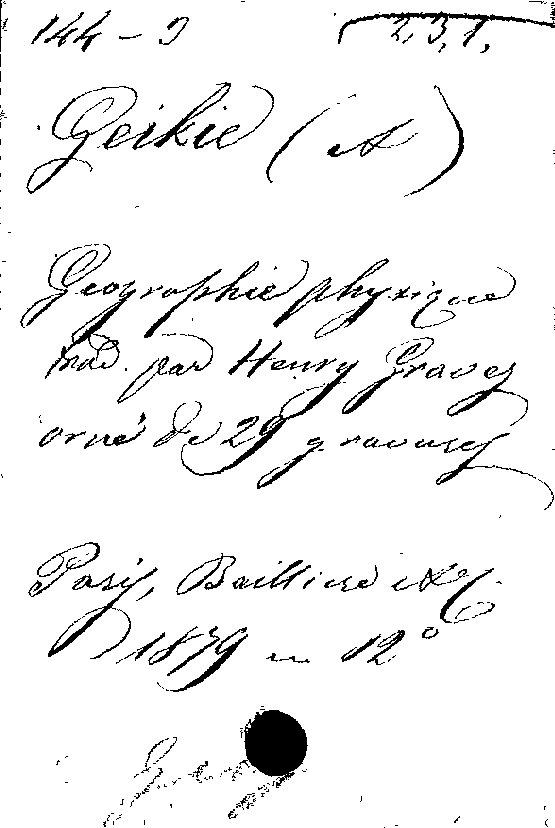 144 - 2 2,3,1,
Geikie (A)
Geographie physique
trad. par Henry Graves
orné de 29 gravures
Paris, Baillière et C.
1879 in 12°